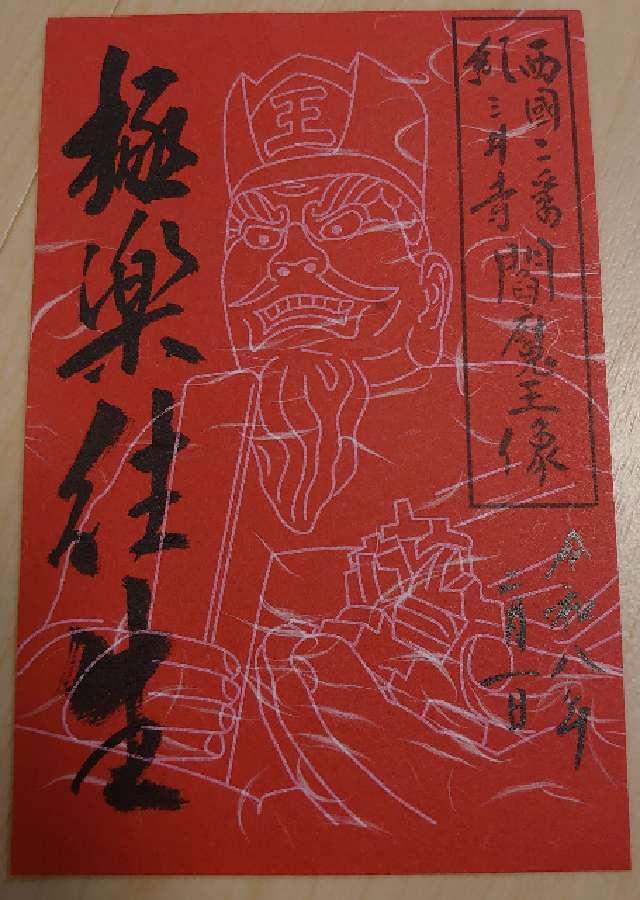 西國二番
紀三井寺 閻魔王像
令和八年
二月一日
王
極楽往生